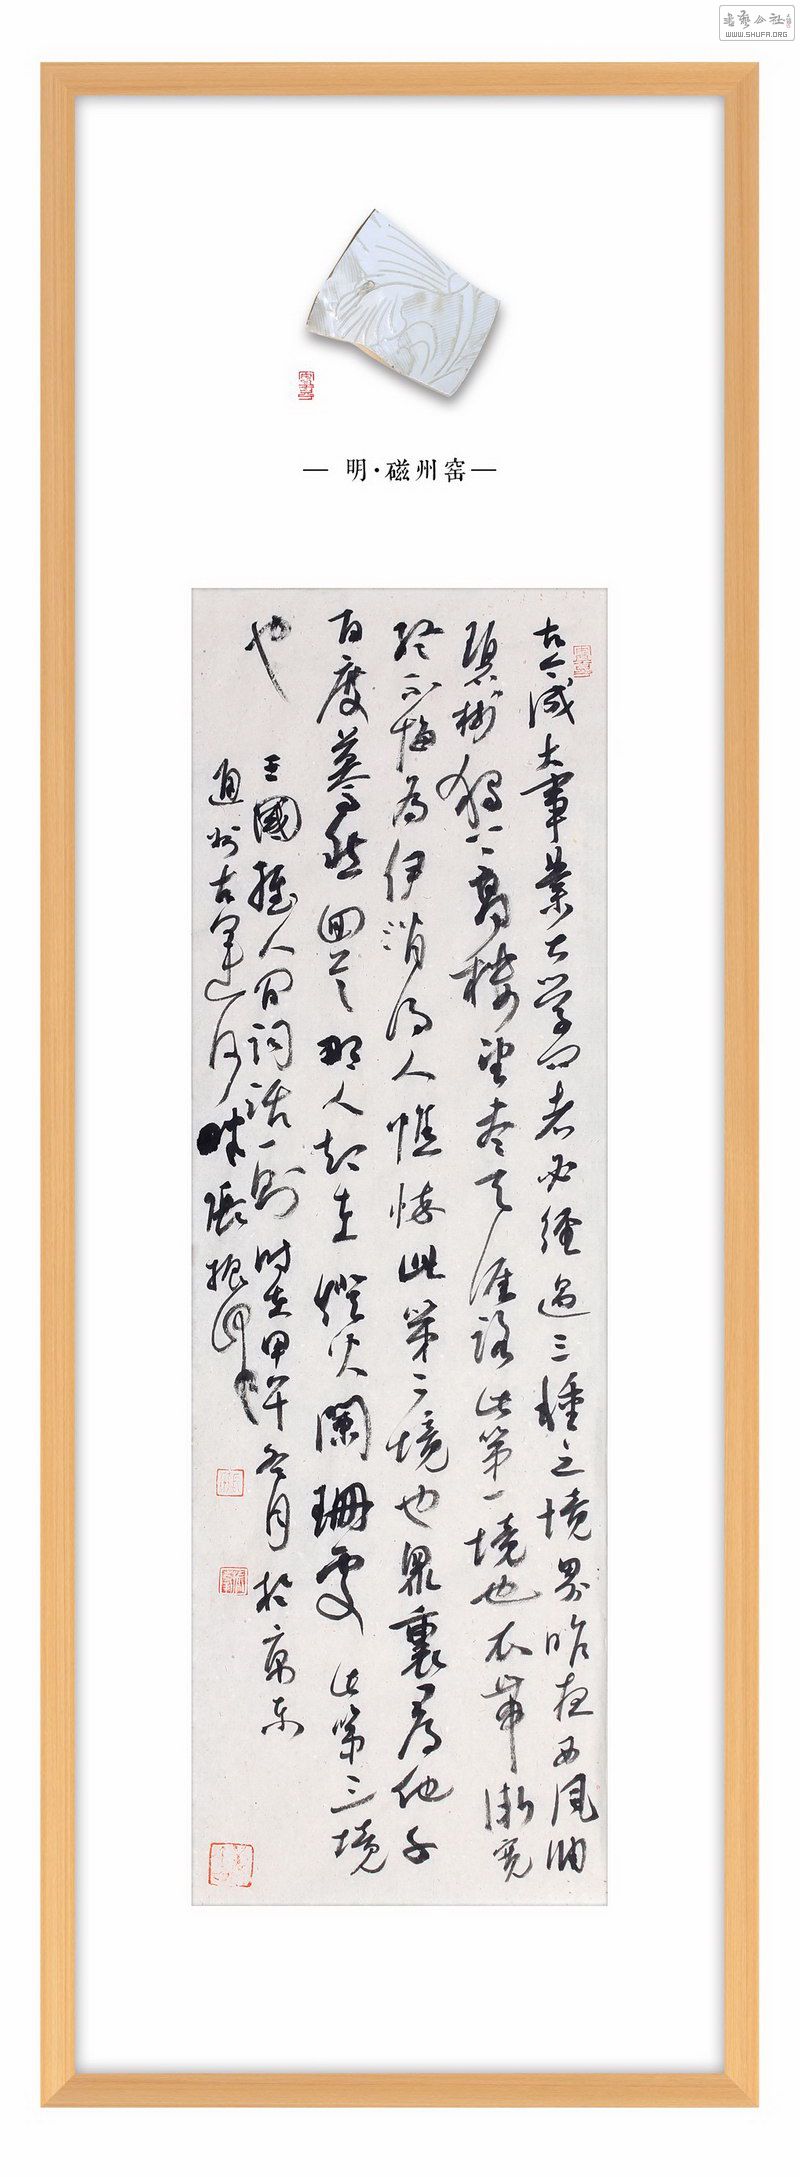 書藝公社
WWW.SHUFA.ORG
— 明·磁州窑—
古今成大事業大学问者必經過三種之境界昨夜西風凋
碧樹獨上高樓望盡天涯路此第一境也衣帶漸寬
終不悔為伊消得人憔悴此第二境也眾裏尋他千
百度驀然回首那人却在燈火闌珊處此第三境
也 王國維人間詞話一則时在甲午冬月於京东
通州古運河畔張振